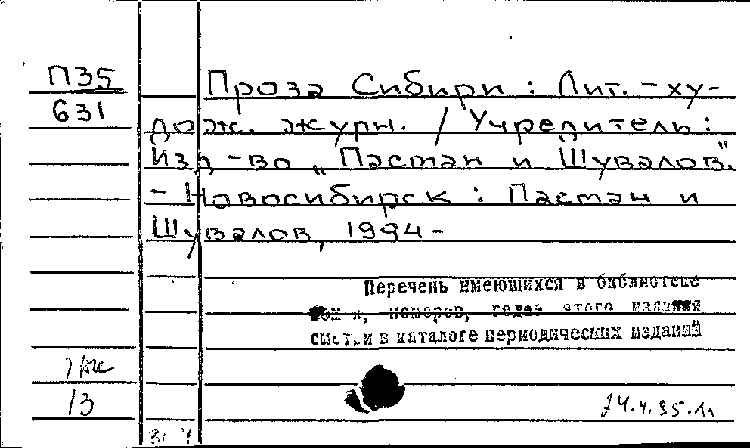 П35
631
Проза Сибири : Лит.-ху-
дож. журн. / Учредитель:
Изд-во „Пасман и Шувалов".
- Новосибирск : Пасман и
Шувалов, 1994-
Перечень имеющихся в библиотеке
номеров, годов этого издания
смотри в каталоге периодических изданий
13